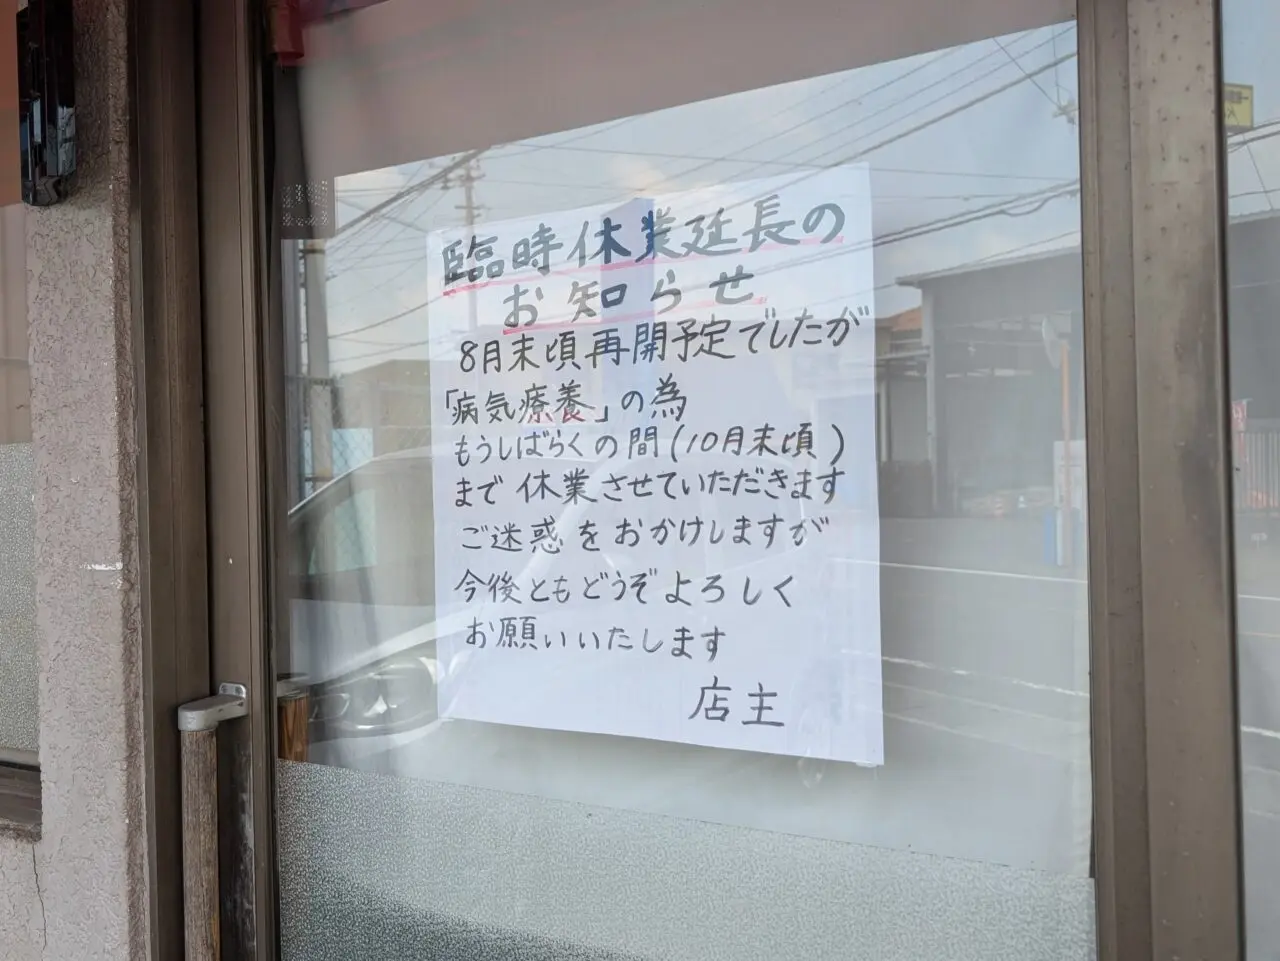 臨時休業延長の
お知らせ
8月末頃再開予定でしたが
「病気療養」の為
もうしばらくの間(10月末頃)
まで休業させていただきます
ご迷惑をおかけしますが
今後ともどうぞよろしく
お願いいたします
店主